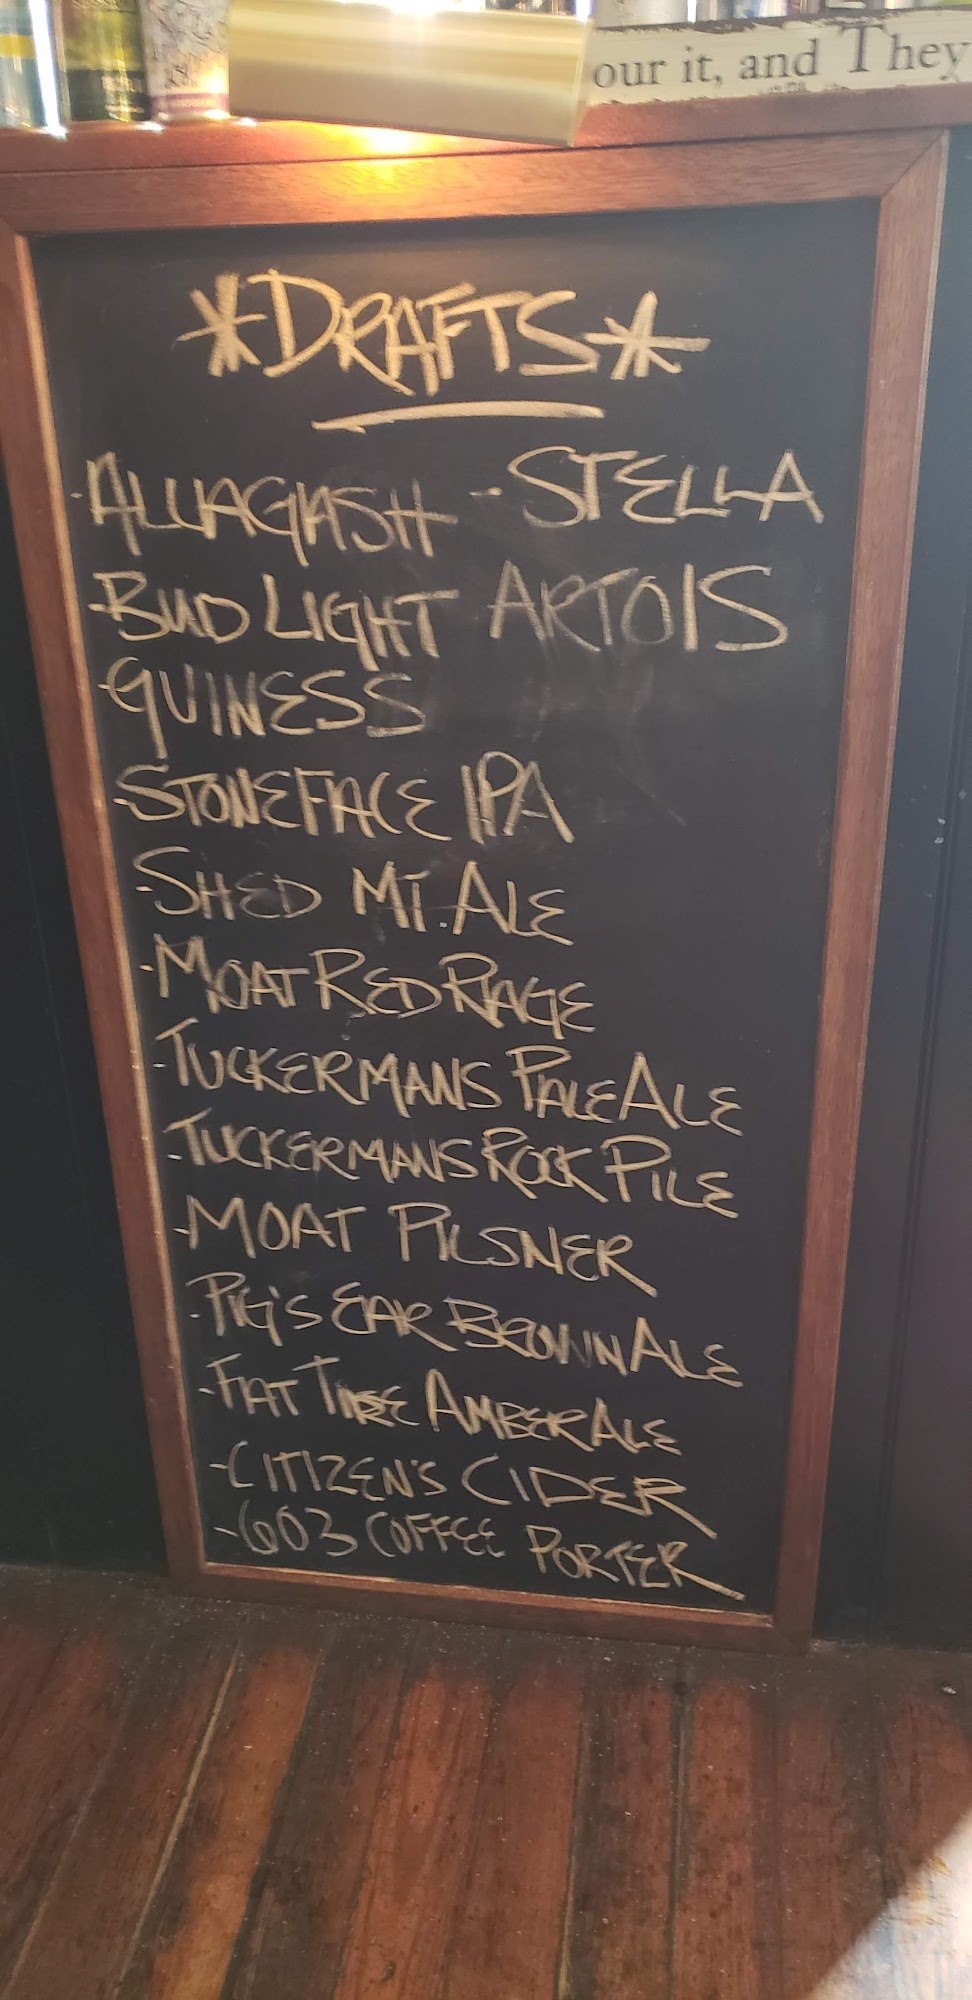 our it, and They
*DRAFTS*
-ALLAGASH
-BUD LIGHT
-GUINESS
-STONEFACE IPA
-SHED MT. ALE
-MOAT RED RAGE
-TUCKERMANS PALE ALE
-TUCKERMANS ROCK PILE
-MOAT PILSNER
-PIG'S EAR BROWN ALE
-FAT TIRE AMBER ALE
-CITIZEN'S CIDER
-603 COFFEE PORTER
-STELLA
ARTOIS